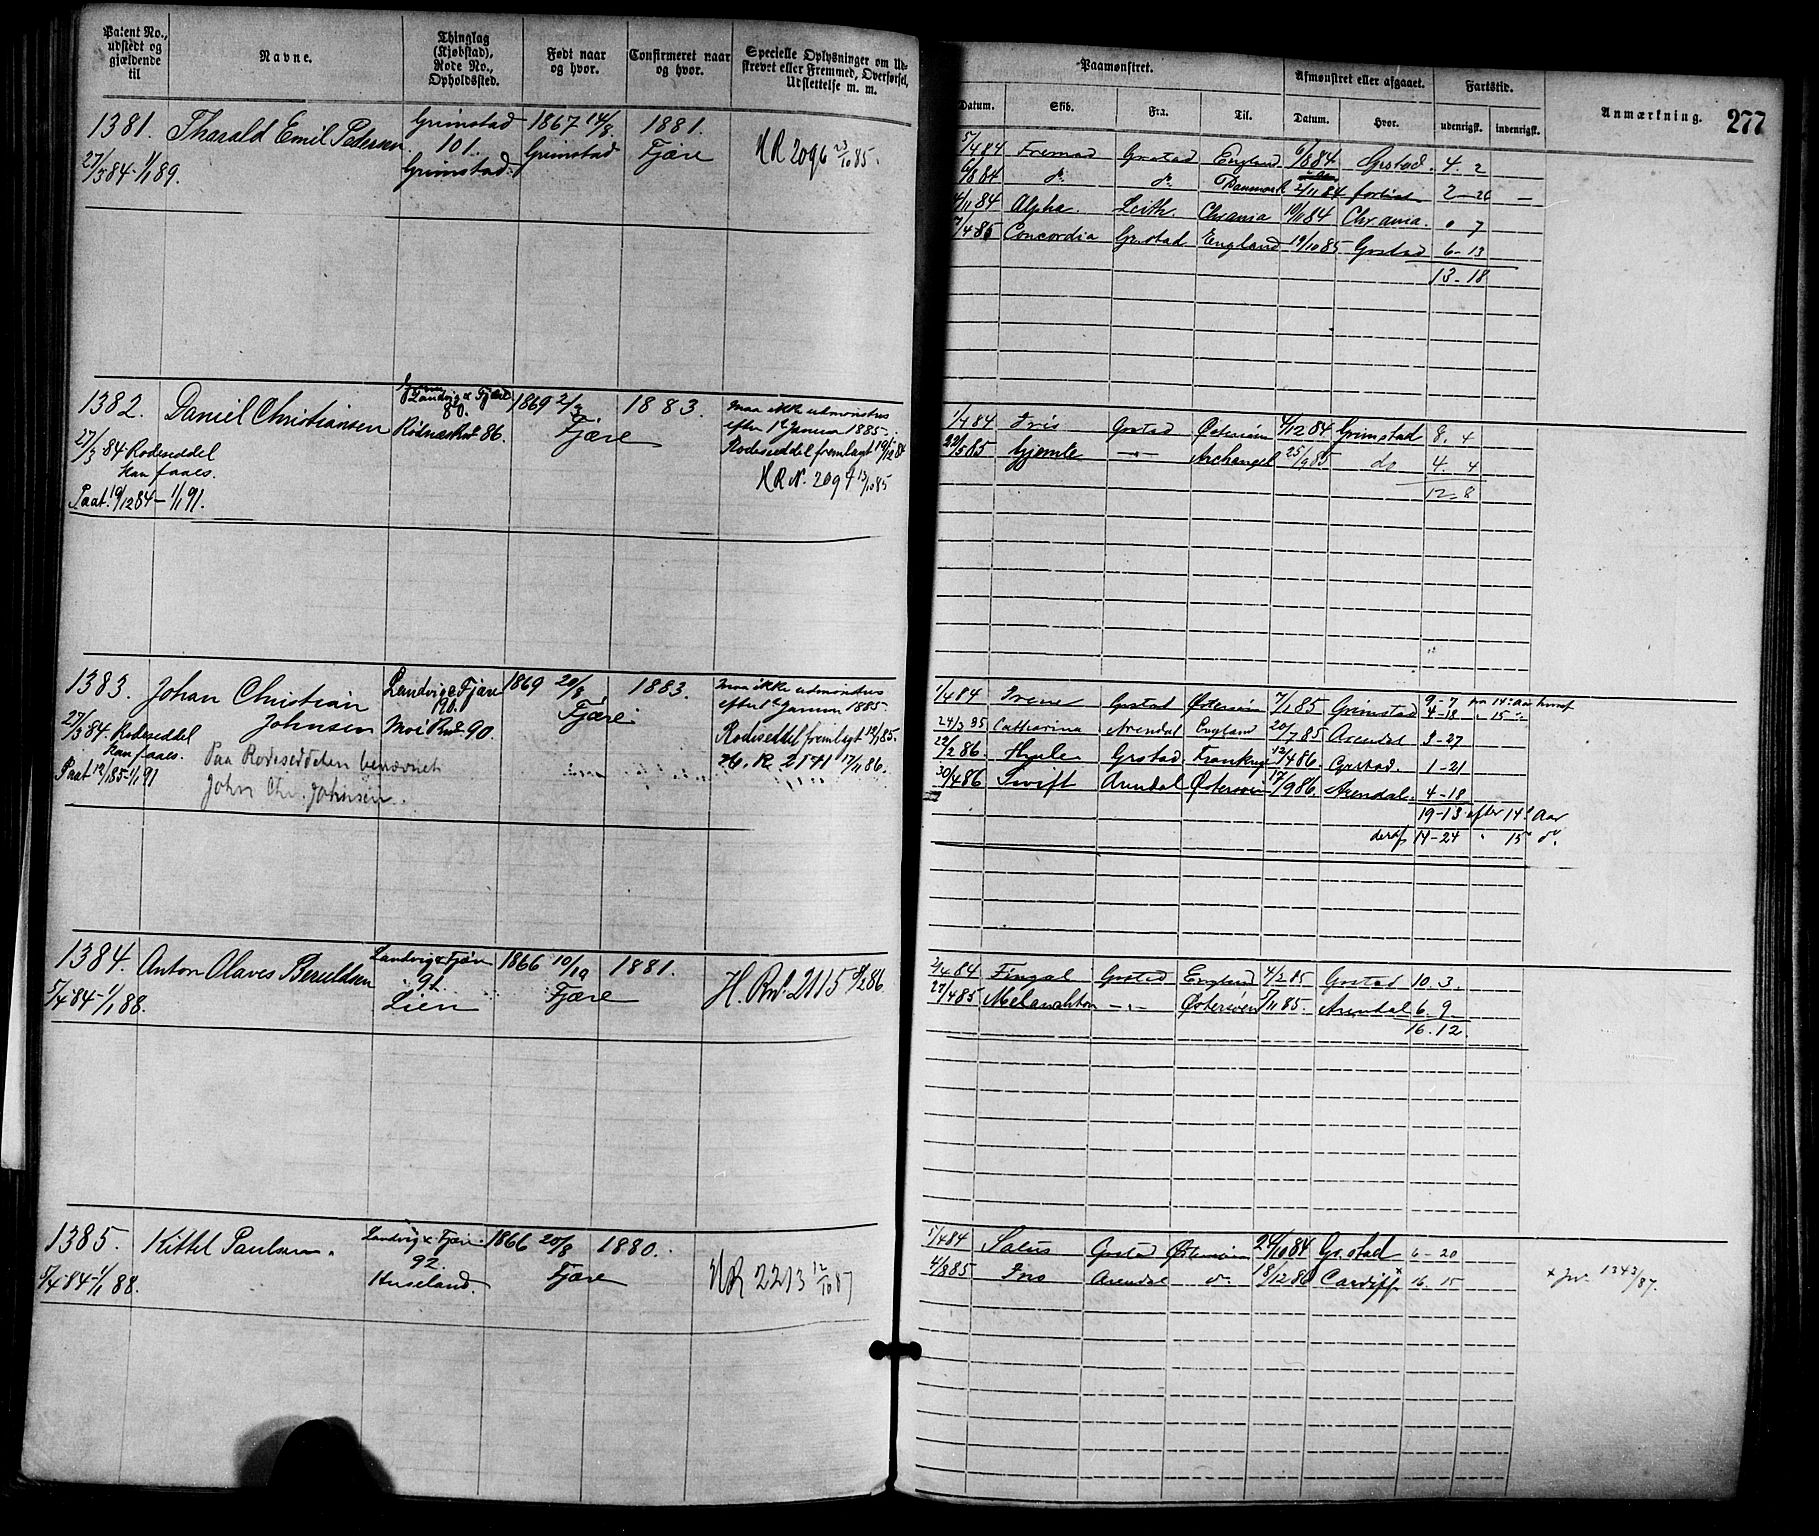 Patent No., udstedt og gjældende til
Navne.
Thinglag (Kjøbstad), Rode No., Opholdssted.
Født naar og hvor.
Confirmeret naar og hvor.
Specielle Oplysninger om Udskrevet eller Fremmed, Overførsel, Udslettelse m. m.
Paamønstret.
Afmønstret eller afgaaet.
Fartstid.
Anmærkning.
277
Datum. Skib. Fra. Til. Datum. Hvor. udenrigsk. indenrigsk.
1381. Tharald Emil Pedersen Grimstad 1867 14/8. 1881.
101. Grimstad Fjære HR 2096 23/10 85.
27/3 84 - 1/1 89. Grimstad.
5/4 84 Fremad Grstad England 6/8 84 Grstad. 4. 2
6/8 84 do do Danmark 2/11 84 forlist 2 - 26 -
4/11 84 Alpha Leith Chrania 10/11 84 Chrania. 0 7
7/4 85 Concordia Grstad England 19/10 85 Grstad 6 - 13
13 - 18
1382. Daniel Christiansen Landvig & Fjære 1869 2/3 1883.
80.
Fjære
86.
27/3 84 Rodeseddel
kan faaes.
Paat. 19/12 84 - 1/1 91.
maa ikke udmønstres
efter 1ste Januar 1885.
Rodeseddel fremlagt 19/12 84
HR No. 2094 13/10 85
1/4 84 Iris Grstad Østersøen 4/12 84 Grimstad 8. 4
22/5 85 Gjemle - " - Archangel 25/9 85 do 4. 4
12. 8
1383. Johan Christian Johnsen Landvig & Fjære 1869 20/8 1883.
190.
Fjære
Moi Rno 90.
27/3 84. Rodeseddel
kan faaes.
Paat 12/1 85 - 1/1 91
Paa Rodeseddelen benævnt
John Chr. Johnsen.
maa ikke udmønstres
efter 1ste Januar 1885.
Rodeseddel fremlagt 12/1 85.
H. R. 2141 17/1 86.
1/4 84 Irene Grstad Østersøen 7/1 85 Grimstad 9 - 7
4 - 18 " 15 "
24/3 85 Catharina Arendal England 20/7 85 Arendal 3 - 27
22/2 86 Grstad Frankrig 12/4 86. Grstad. 1 - 21
30/4 86 Swift Arendal Østersøen 17/9 86. Arendal. 4 - 18
19 - 13 efter 14de Aar
deraf 14 - 24 " 15 do.
1384. Anton Olaves Beruldsen Landvig & Fjære 1866 10/10 1881.
91.
Fjære
5/4 84 - 1/1 88. Lien
H. Rno 2115 9/2 86
2/4 84 Fingal Grstad England 4/2 85 Grstad 10. 3.
27/4 85 Melanchton - " - Østersøen 7/11 85. Arendal 6. 9
16. 12.
1385. Kittel Paulsen. Landvig & Fjære. 1866 20/8 1880.
92.
Fjære
5/4 84 - 1/1 88. Huseland.
HR 2213 12/10 87
5/4 84 Salus Grstad Østersøen 24/10 84 Gr.stad 6 - 20
4/8 85 Ino Arendal do 18/12 86 Cardiff x 16. 15
x Jnr. 1343/87.